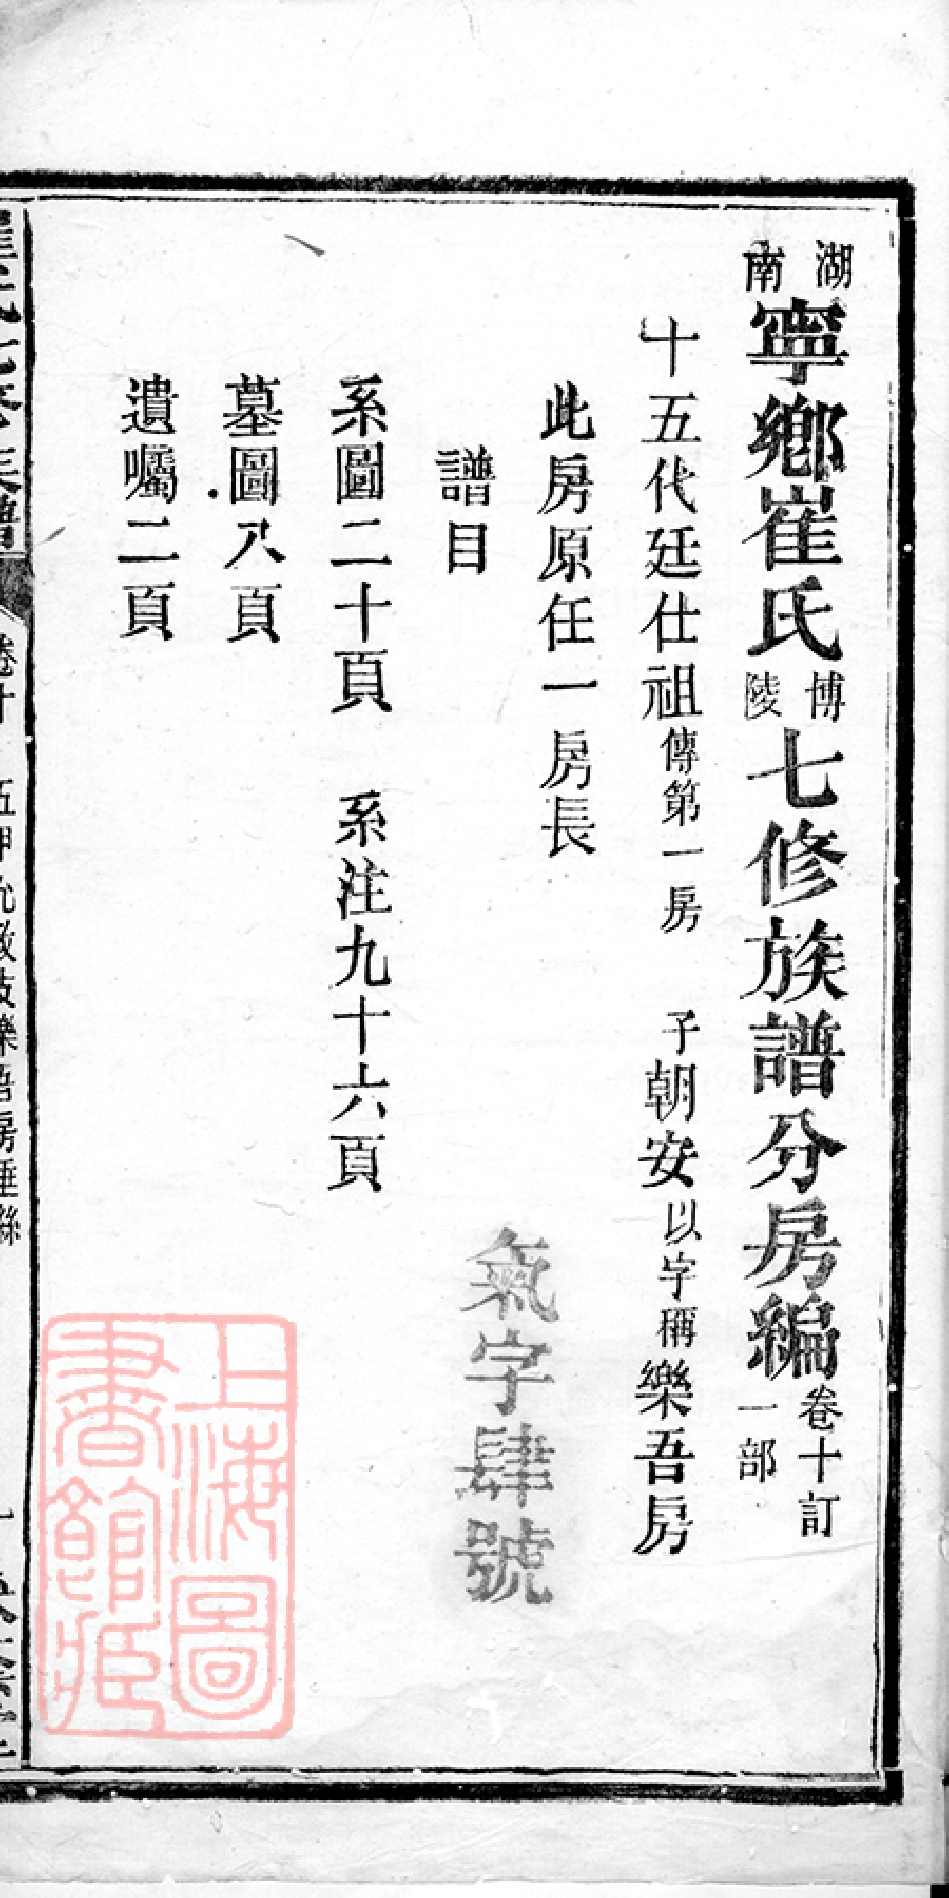 湖南寧鄉崔氏博陵七修族譜分房編卷十訂一部
十五代廷仕祖傳第一房　子朝安以字稱樂吾房
此房原任一房長
譜目
系圖二十頁　系注九十六頁
墓圖八頁
遺囑二頁
氣字肆號
上海圖書館藏